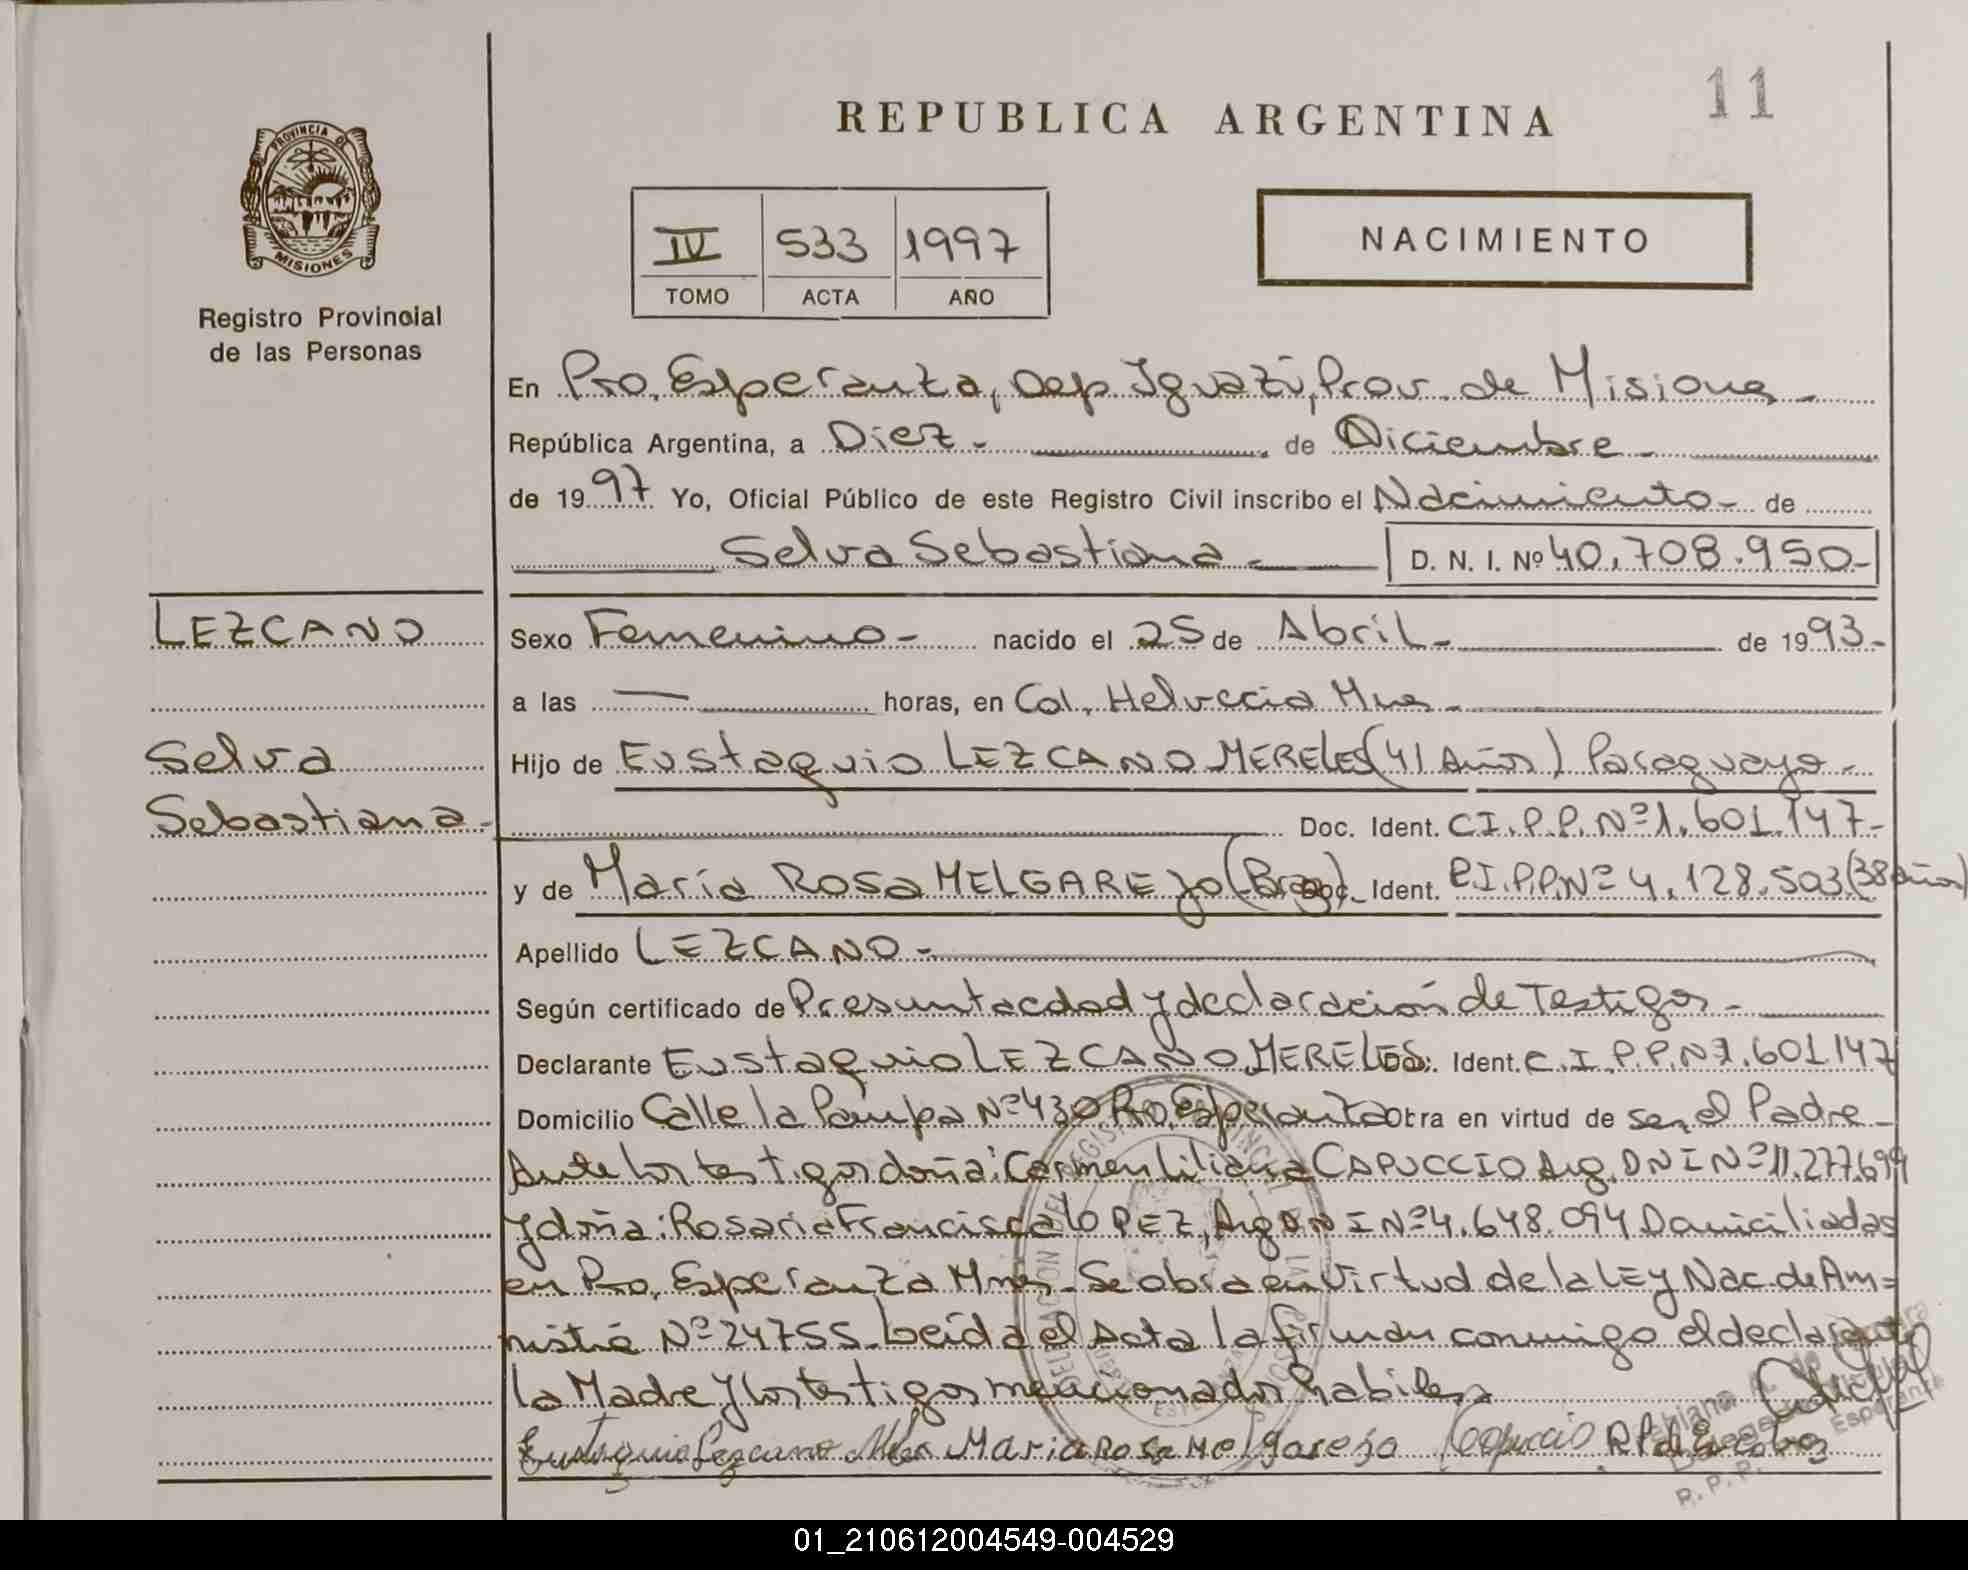 REPUBLICA ARGENTINA
11
PROVINCIA DE
MISIONES
Registro Provincial
de las Personas
IV 533 1997
TOMO ACTA AÑO
NACIMIENTO
En Pto. Esperanza, Dep. Iguazú, Prov. de Misiones -
República Argentina, a Diez - de Diciembre -
de 1997 Yo, Oficial Público de este Registro Civil inscribo el Nacimiento - de
Selva Sebastiana - D. N. I. Nº 40.708.950-
LEZCANO
Selva
Sebastiana -
Sexo Femenino - nacido el 25 de Abril - de 1993-
a las — horas, en Col. Helveccia Mnes -
Hijo de Eustaquio LEZCANO MERELES (41 Años) Paraguayo -
Doc. Ident. C.I.P.P. Nº 1.601.147-
y de María Rosa MELGAREJO (Bra) Doc. Ident. C.I.P.P. Nº 4.128.503 (38 años)
Apellido LEZCANO -
Según certificado de Presunta edad y declaración de Testigos -
Declarante Eustaquio LEZCANO MERELES Doc. Ident. C.I.P.P.N 1.601.147
Domicilio Calle la Pampa Nº 430 Pto. Esperanza Obra en virtud de ser el Padre
Ante los testigos doña: Carmen Liliana CAPUCCIO Arg. DNI Nº 11.277.699
y doña: Rosaria Francisca LOPEZ, Arg DNI Nº 4.648.094 Domiciliadas
en Pto. Esperanza Mnes - Se obra en Virtud de la LEy Nac. de Am=
nistia Nº 24755 - Leída el Acta la firman conmigo el declarante
la Madre y los testigos mencionados habiles
Eustaquio Lezcano Maria Rosa Melgarejo Capuccio
01_210612004549-004529